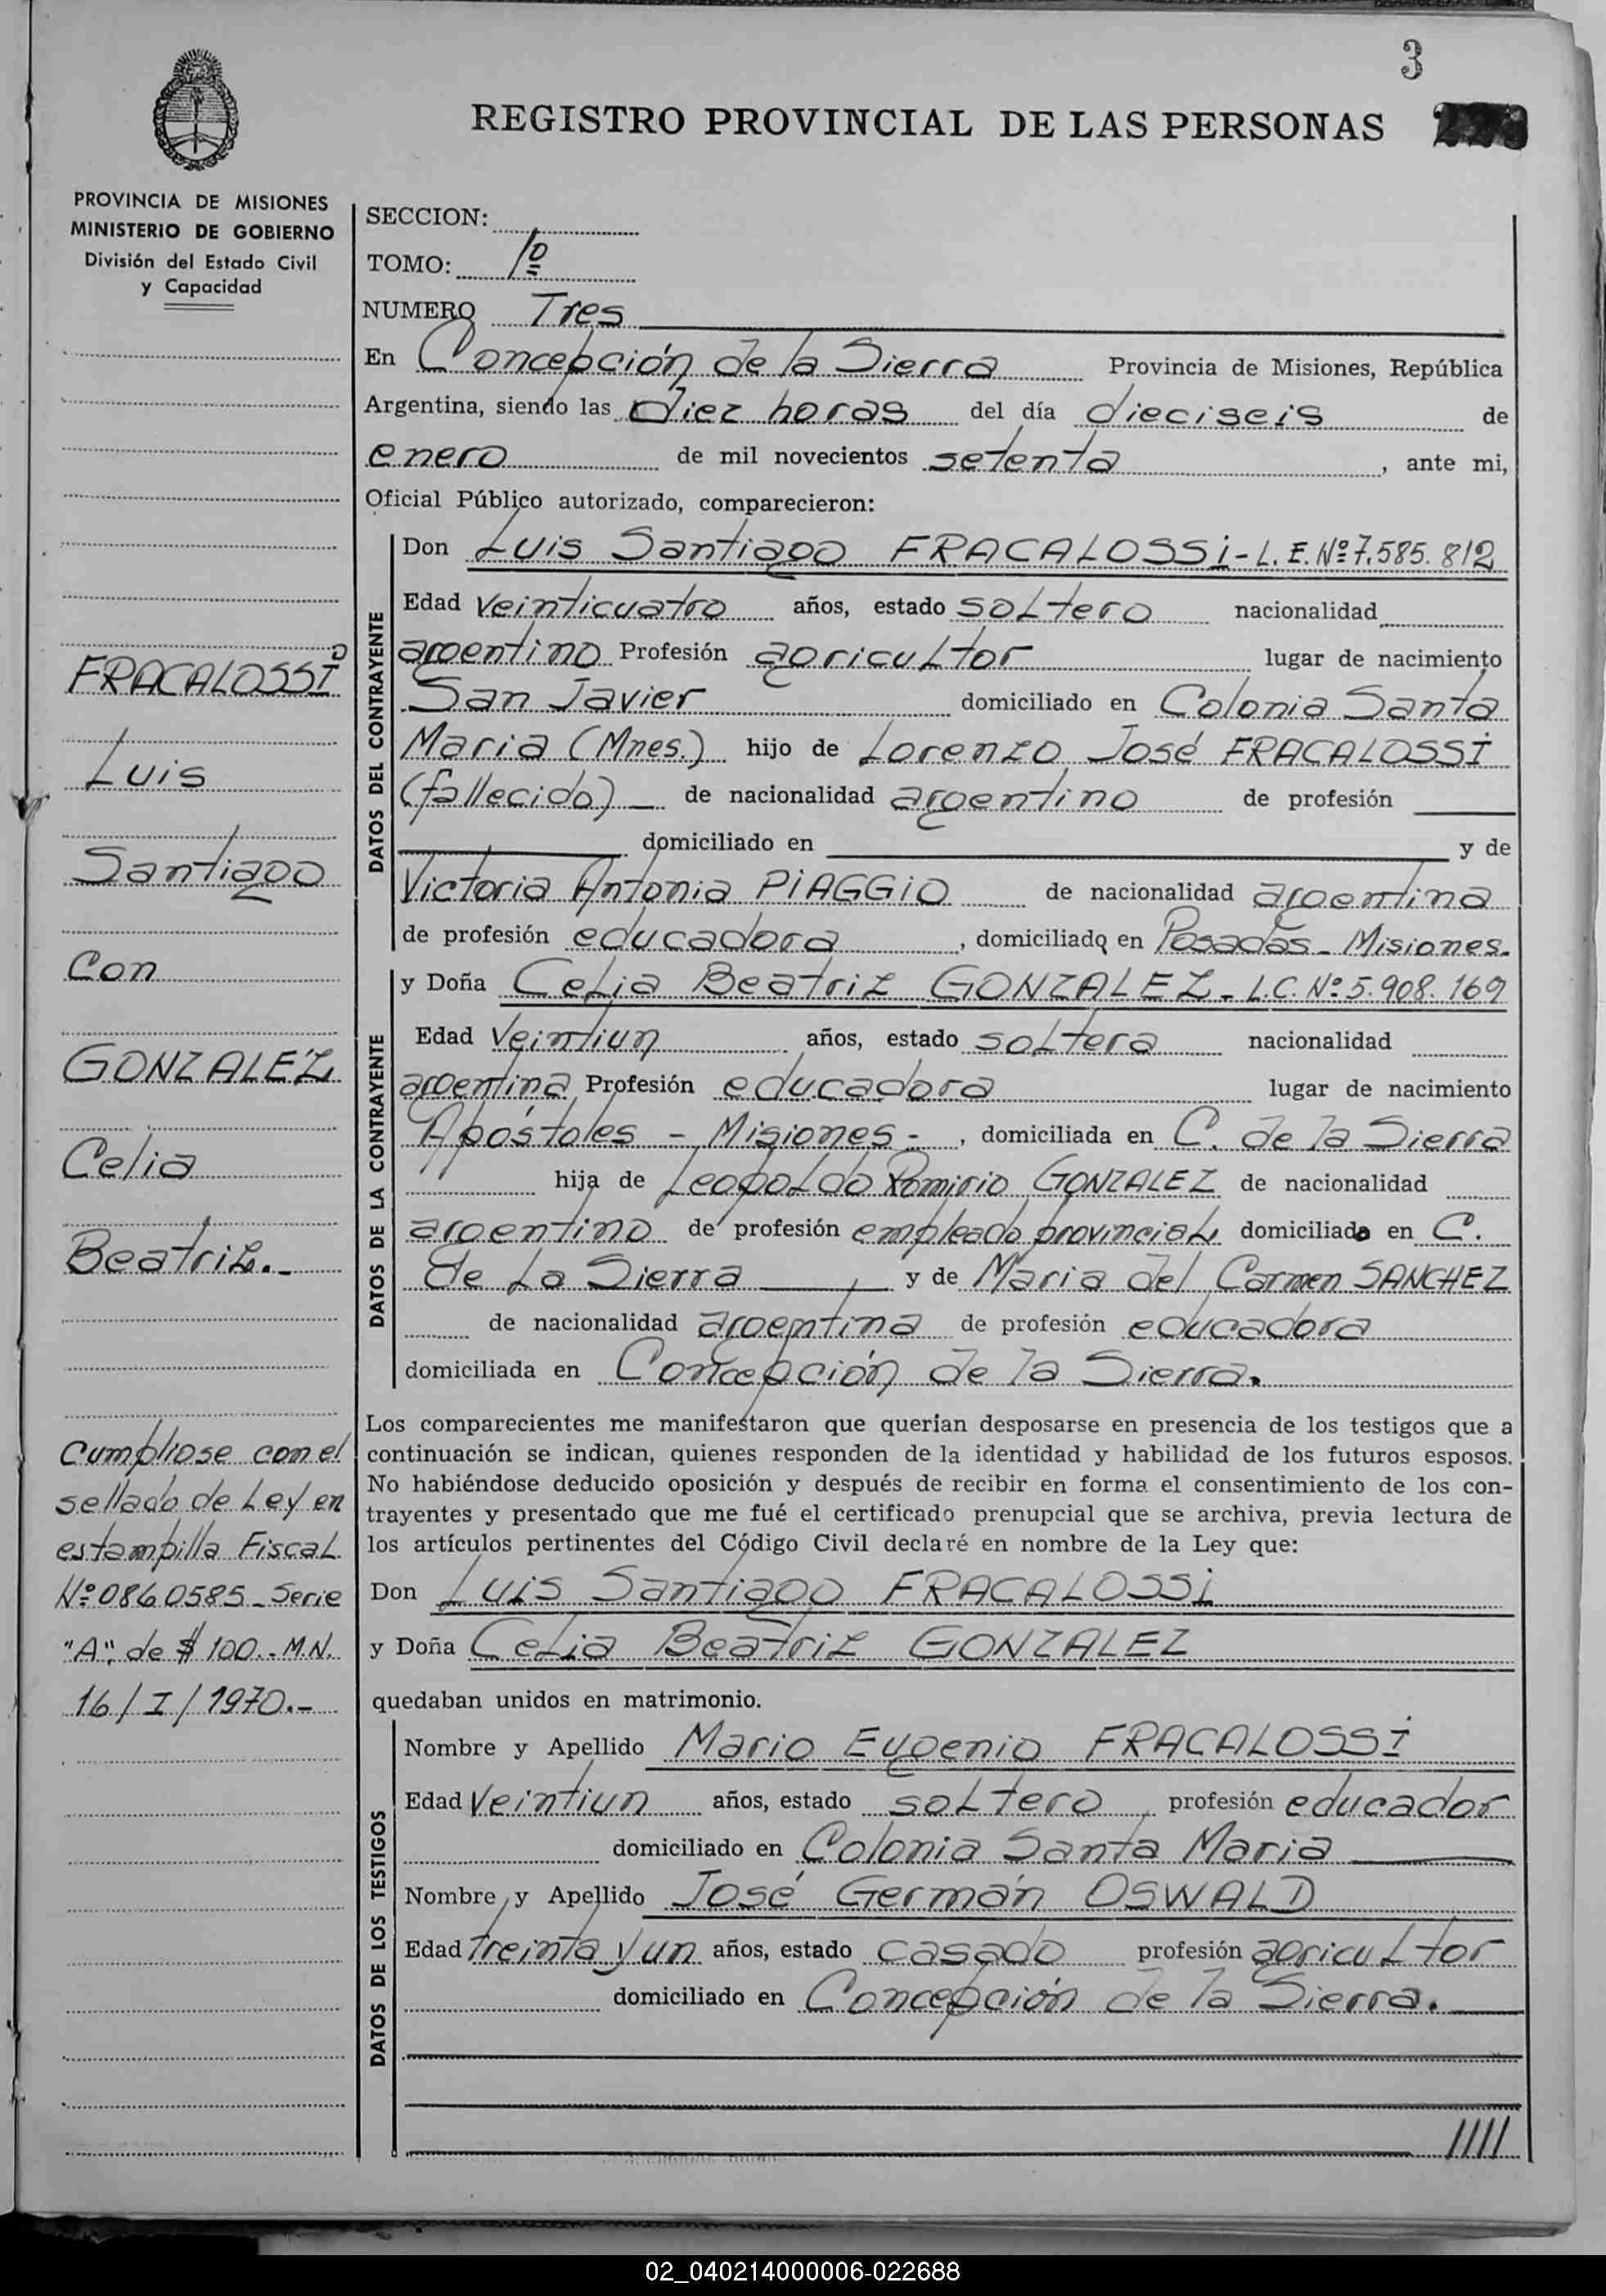 3
REGISTRO PROVINCIAL DE LAS PERSONAS
PROVINCIA DE MISIONES
MINISTERIO DE GOBIERNO
División del Estado Civil
y Capacidad
FRACALOSSI
Luis
Santiago
Con
GONZALEZ
Celia
Beatriz.-
Cumpliose con el
sellado de Ley en
estampilla Fiscal
Nº 0860585 - Serie
"A", de $ 100.- M.N.
16/I/1970.-
SECCION:
TOMO: 1º
NUMERO Tres
En Concepción de la Sierra Provincia de Misiones, República
Argentina, siendo las Diez horas del día dieciseis de
enero de mil novecientos setenta, ante mi,
Oficial Público autorizado, comparecieron:
DATOS DEL CONTRAYENTE
Don Luis Santiago FRACALOSSi - L.E. Nº 7.585.812
Edad veinticuatro años, estado soltero nacionalidad
argentino Profesión agricultor lugar de nacimiento
San Javier domiciliado en Colonia Santa
Maria (Mnes.) hijo de Lorenzo José FRACALOSSI
(fallecido) de nacionalidad argentino de profesión
domiciliado en y de
Victoria Antonia PiAGGiO de nacionalidad argentina
de profesión educadora, domiciliado en Posadas - Misiones.
DATOS DE LA CONTRAYENTE
y Doña Celia Beatriz GONZALEZ - L.C. Nº 5.908.169
Edad Veintiun años, estado soltera nacionalidad
argentina Profesión educadora lugar de nacimiento
Apóstoles - Misiones -, domiciliada en C. de la Sierra
hija de Leopoldo Romirio GONZALEZ de nacionalidad
argentino de profesión empleado provincial domiciliado en C.
de La Sierra, y de Maria del Carmen SANCHEZ
de nacionalidad argentina de profesión educadora
domiciliada en Concepción de la Sierra.
Los comparecientes me manifestaron que querían desposarse en presencia de los testigos que a
continuación se indican, quienes responden de la identidad y habilidad de los futuros esposos.
No habiéndose deducido oposición y después de recibir en forma el consentimiento de los con-
trayentes y presentado que me fué el certificado prenupcial que se archiva, previa lectura de
los artículos pertinentes del Código Civil declaré en nombre de la Ley que:
Don Luis Santiago FRACALOSSi
y Doña Celia Beatriz GONZALEZ
quedaban unidos en matrimonio.
DATOS DE LOS TESTIGOS
Nombre y Apellido Mario Eugenio FRACALOSSI
Edad Veintiun años, estado soltero profesión educador
domiciliado en Colonia Santa Maria
Nombre y Apellido José Germán OSWALD
Edad treinta y un años, estado casado profesión agricultor
domiciliado en Concepción de la Sierra.
02_040214000006-022688